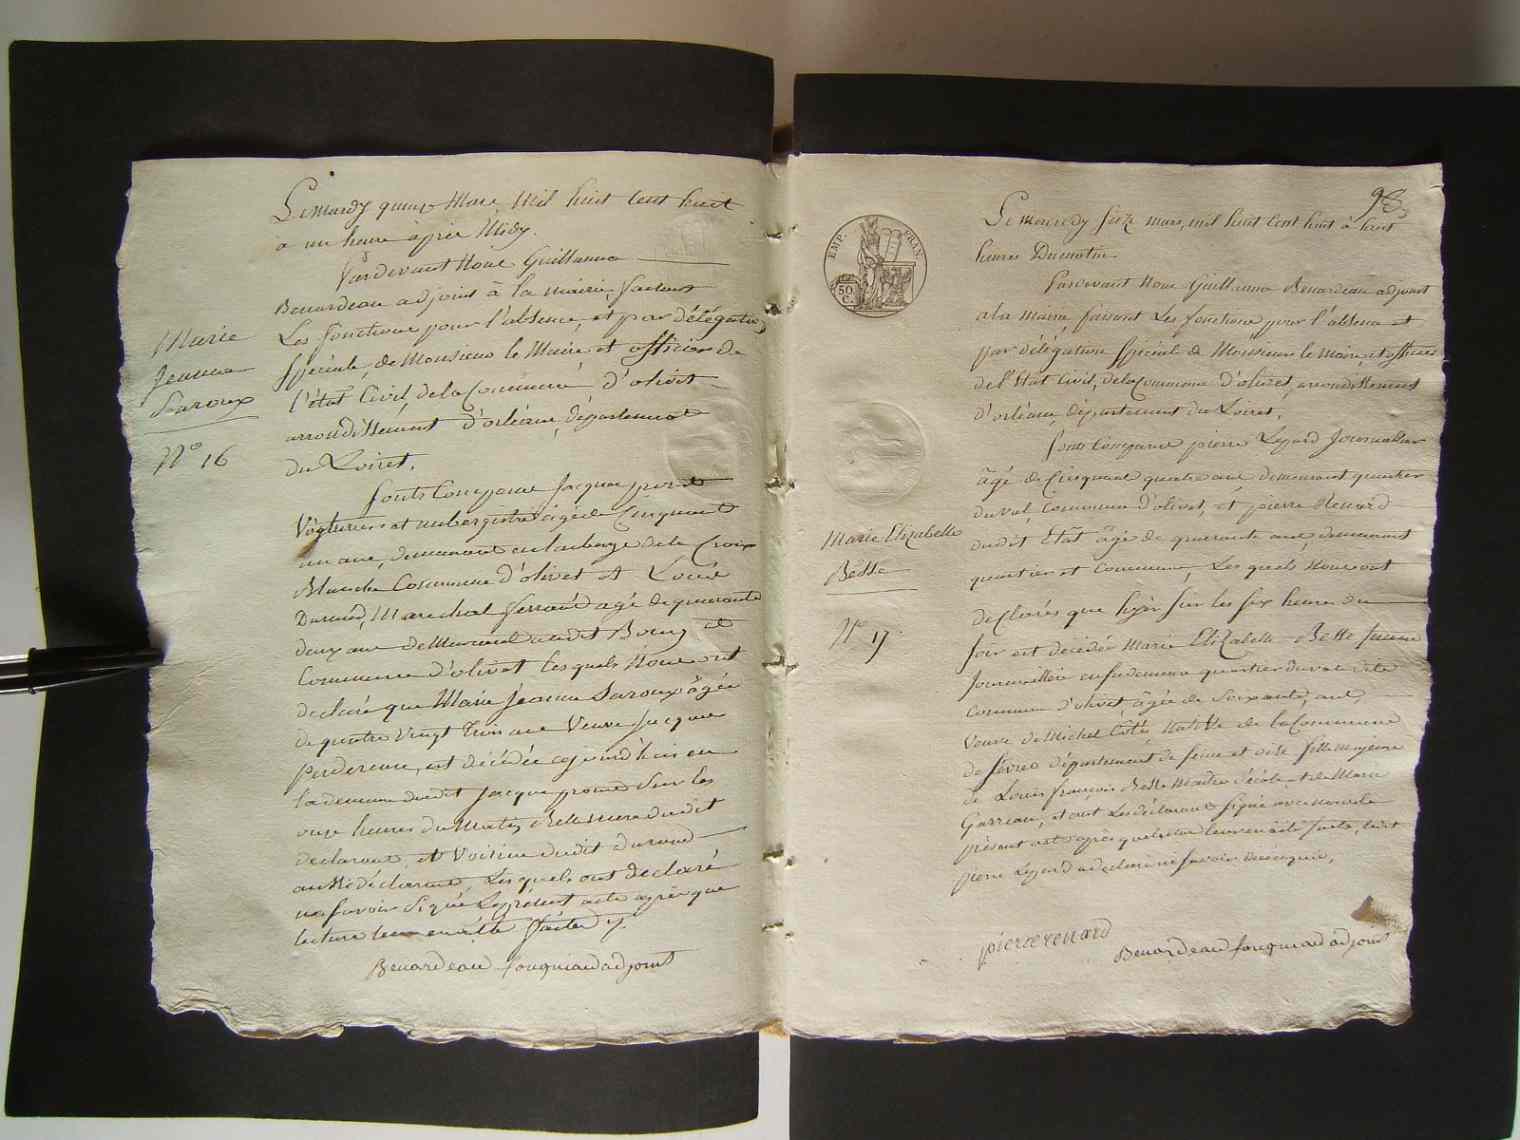 Le mardy quinze Mars Mil huit Cent huit
à une heure après Midy.
Pardevant Nous Guillaume
Benardeau adjoint à la mairie, faisant
Les fonctions pour l'absence, et par délégation
Spéciale, de Monsieur le Maire et officier de
l'état Civil, de la Commune d'olivet
arrondissement d'orléans, département
du Loiret.
Marie
Jeanne
Laroux
N° 16
sonts Comparus Jacques
Voiturier et aubergiste âgé de Cinquante
un ans, demeurant en l'auberge de la Croix
Blanche Commune d'olivet et Louis
Durand, Marechal ferrand agé de quarante
deux ans demeurant audit Bourg et
Commune d'olivet lesquels Nous ont
déclaré que Marie Jeanne Laroux âgée
de quatre Vingt Trois ans Veuve Jacques
est décédée ajourd'hui en
la demeure dudit Jacque sur les
onze heures du Matin, Belle Mere dudit
declarant, et Voisine dudit durand
aussi déclarant, Lesquels ont declaré
ne savoir Signé Le présent acte après que
lecture leur en a été faite
Benardeau adjoint
98
EMP. FRAN.
50 C.
Le mercredy seize mars, mil huit Cent huit à huit
heures Du matin
Pardevant Nous Guillaume Benardeau adjoint
a la Mairie faisant Les fonctions pour l'absence et
par délégation Spécial de Monsieur le maire, et officier
de l'Etat Civil, de la Commune d'olivet, arrondissement
D'orléans, Département du Loiret.
Marie Elizabelle
Besse
N° 17
sonts Comparus pierre Journallier
âgé de Cinquante quatre ans demeurant quartier
du val, Commune d'olivet, et pierre Renard
dudit Etat âgé de quarante ans, demeurant
quartier et Commune, Les quels Nous ont
déClarés que hyer sur les six heures du
soir est décédée Marie Elizabelle Besse femme
Journallière en sa demeure quartier du val dite
commune d'olivet, âgée de Soixante, ans,
Veuve de Michel Native de la Commune
de sèvres département de seine et oise fille majeure
de Louis françois Besse Maitre d'école et de Marie
Garreau, et ont Les déclarants signé avec nous le
présent acte après que lecture leur en a été faite, ledit
pierre a declaré ne savoir
pierre renard
Benardeau adjoint